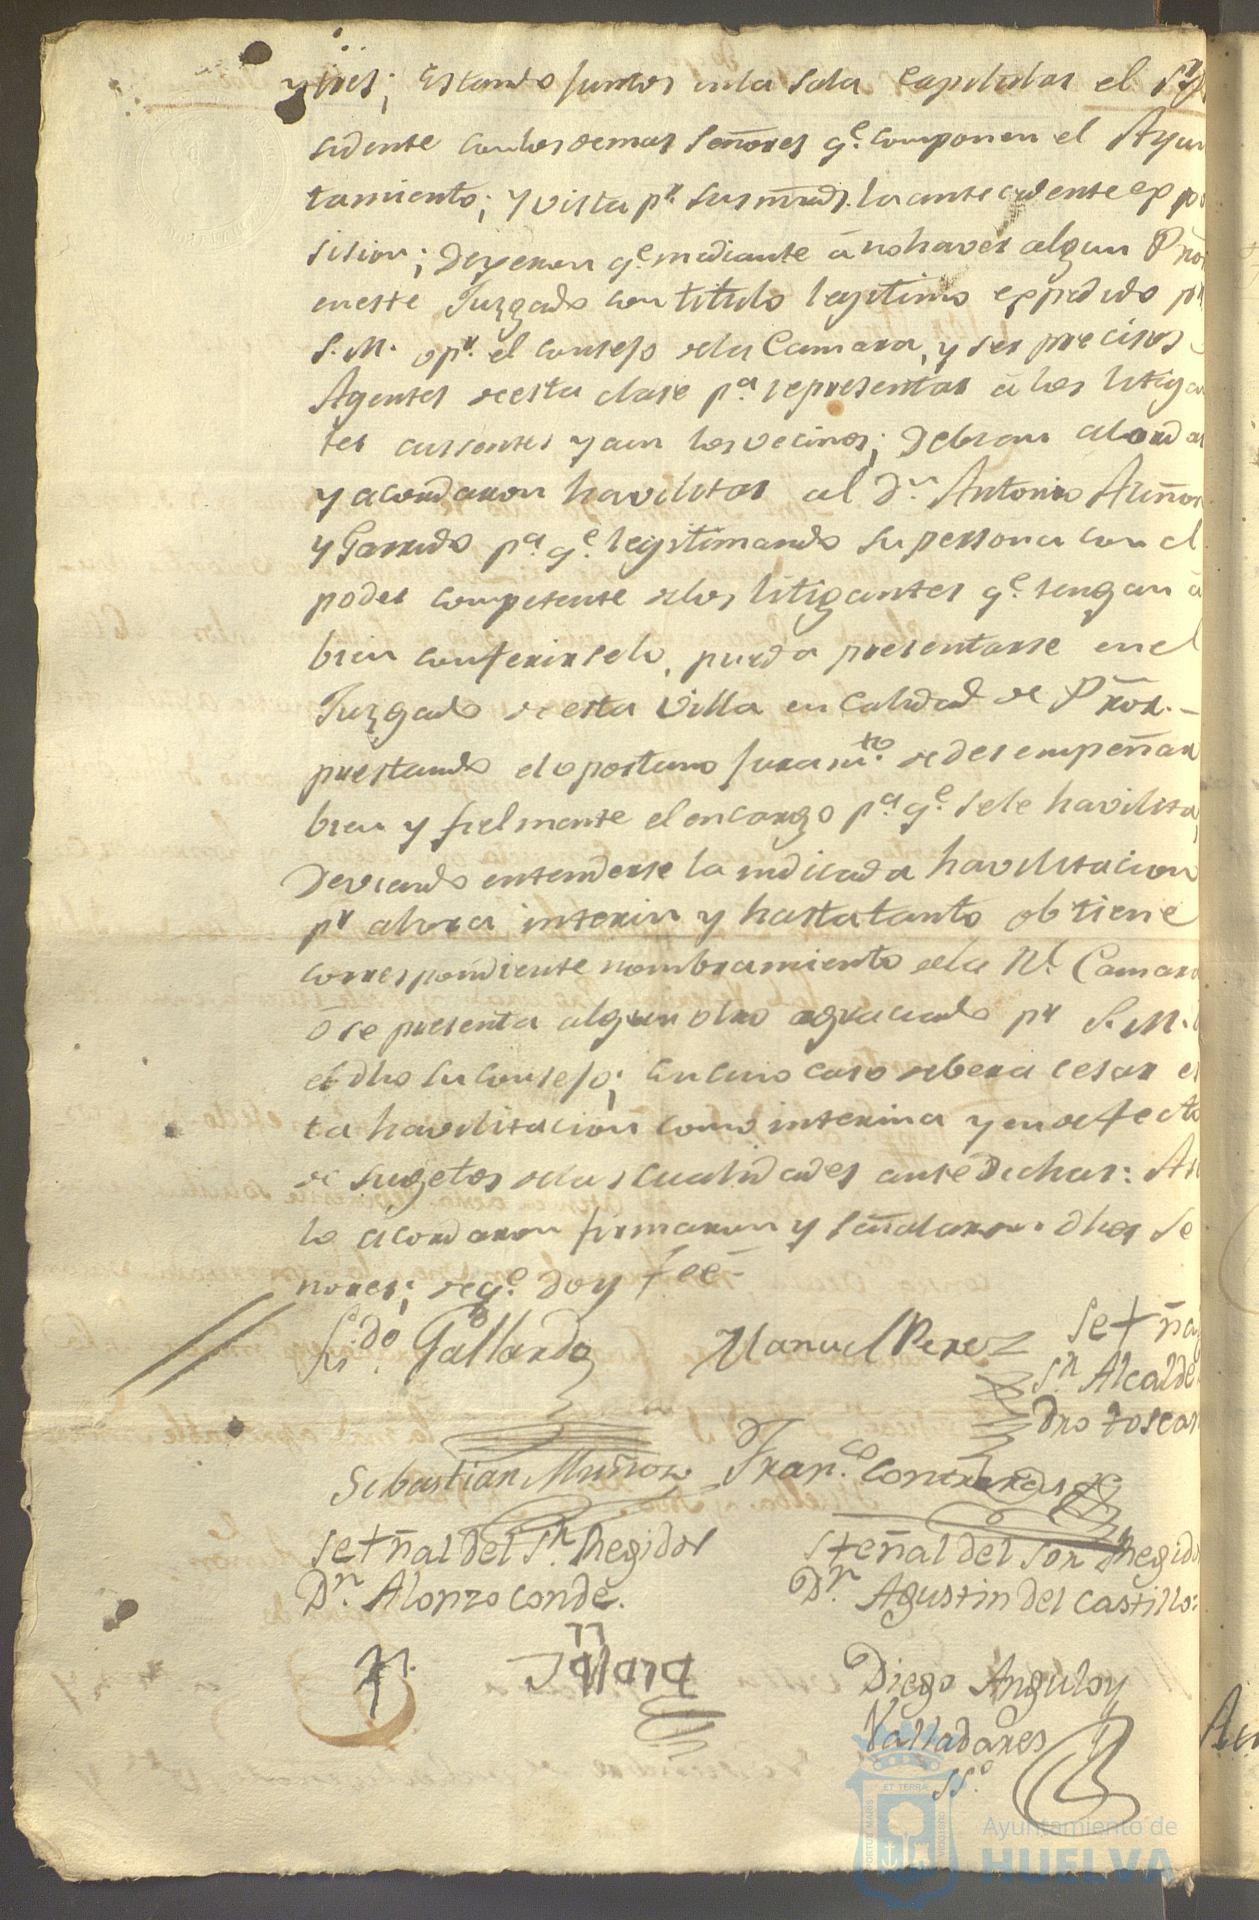 y tres; Estando juntos en la Sala Capitular el Sr
sidente con los demas Señores qe. componen el Ayun
tamiento; y vista pr. sus mrds. la antecedente expo
sision; Dixeron qe. mediante á no haver algun Pror
en este Juzgado con titulo legitimo expedido pr
S. M. o pr. el consejo de la Camara, y ser precisos
Agentes de esta clase pa. representar á los litigan
tes ausentes y aun los vecinos; Debian acordar
y acordaron havilitar al Dn. Antonio Muños
y Garrido pa. qe. legitimando su persona con el
poder competente de los litigantes qe. tengan á
bien conferirselo, pueda presentarse en el
Juzgado de esta Villa en calidad de Pror.
prestando el oportuno juramto. de desempeñar
bien y fielmente el encargo pa. qe. se le havilita,
Deviendo entenderse la indicada havilitacion
pr ahora interin y hasta tanto obtiene
correspondiente nombramiento de la Rl. Camara
ó se presenta algun otro agraciado pr S. M.
el dho su consejo; en cuio caso debera cesar es
ta havilitacion como interina y en defecto
de sugetos de las cualidades antedichas: Asi
lo acordaron firmaron y señalaron dhos Se
ñores; de qe. Doy feé
Lizdo. Gallardo
Manuel Perez
Se+ñal
Sr. Alcalde
dro Toscan
Sebastian Muñoz
Franco. Contreras
Se+ñal del Sr. Regidor
Dn. Alonzo Conde.
S+eñal del Sor Regido
Dn. Agustin del Castillo
Diego Anguloy
Valladares
SSo.
PORTUS MARIS
ET TERRÆ
CUSTODIA
Ayuntamiento de
HUELVA